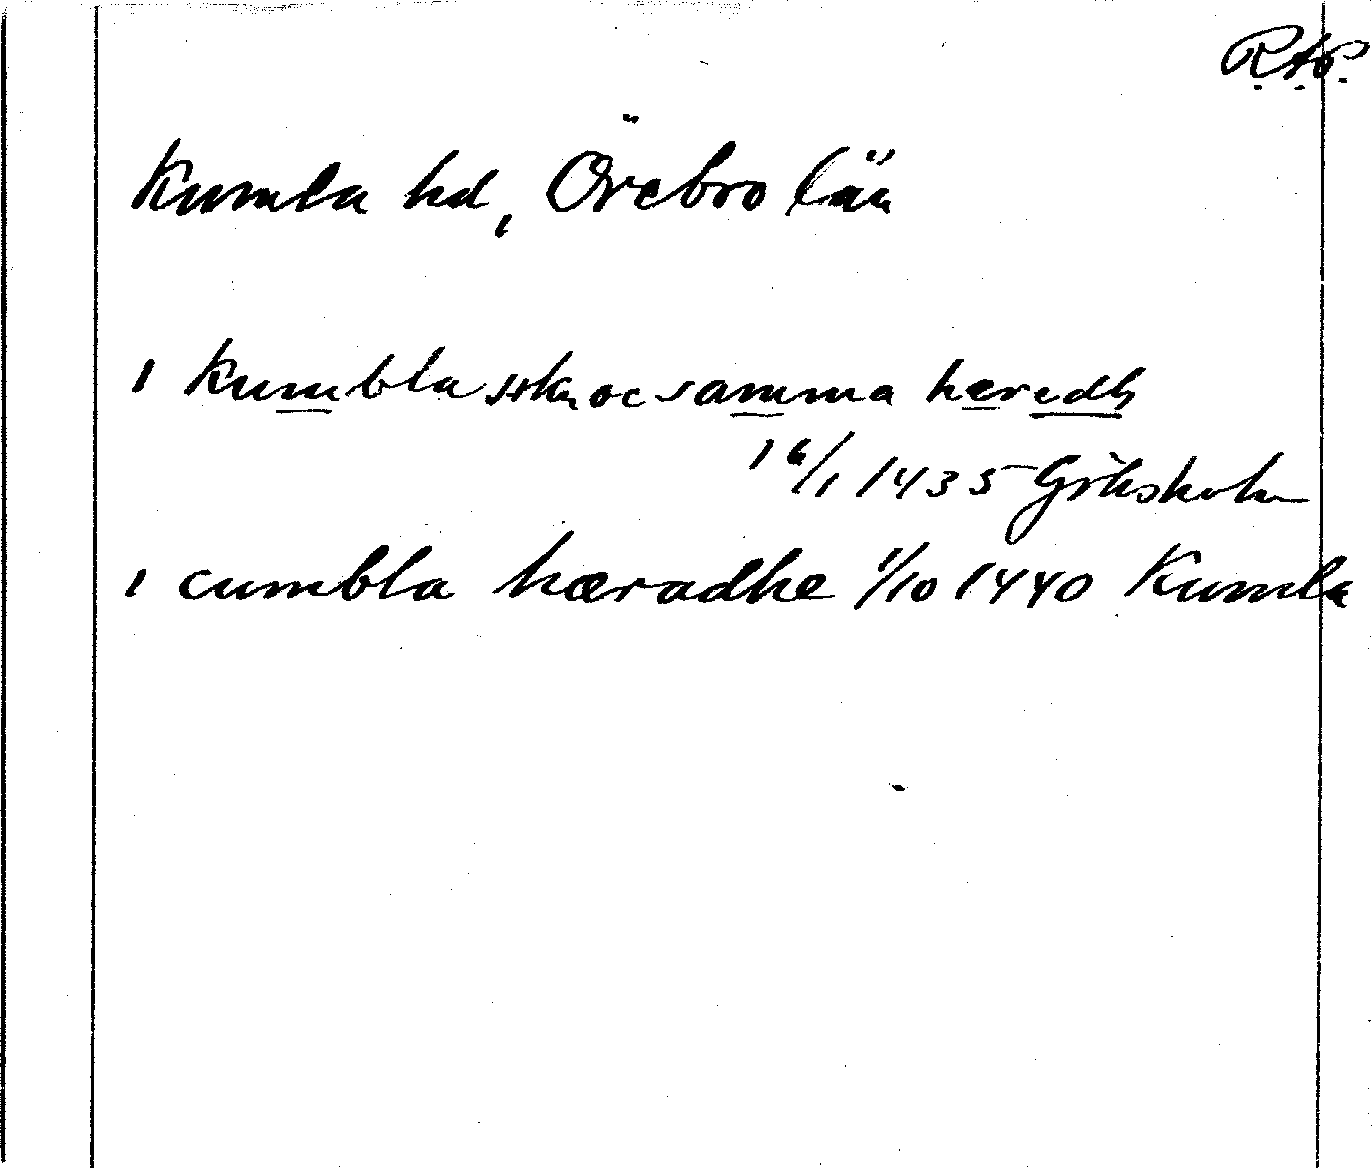 RAP.
Kumla hd, Örebro län
1 kumbla sokn oc samma heredh
16/1 1435 Göksholm
1 cumbla hæradhe 1/10 1440 Kumla